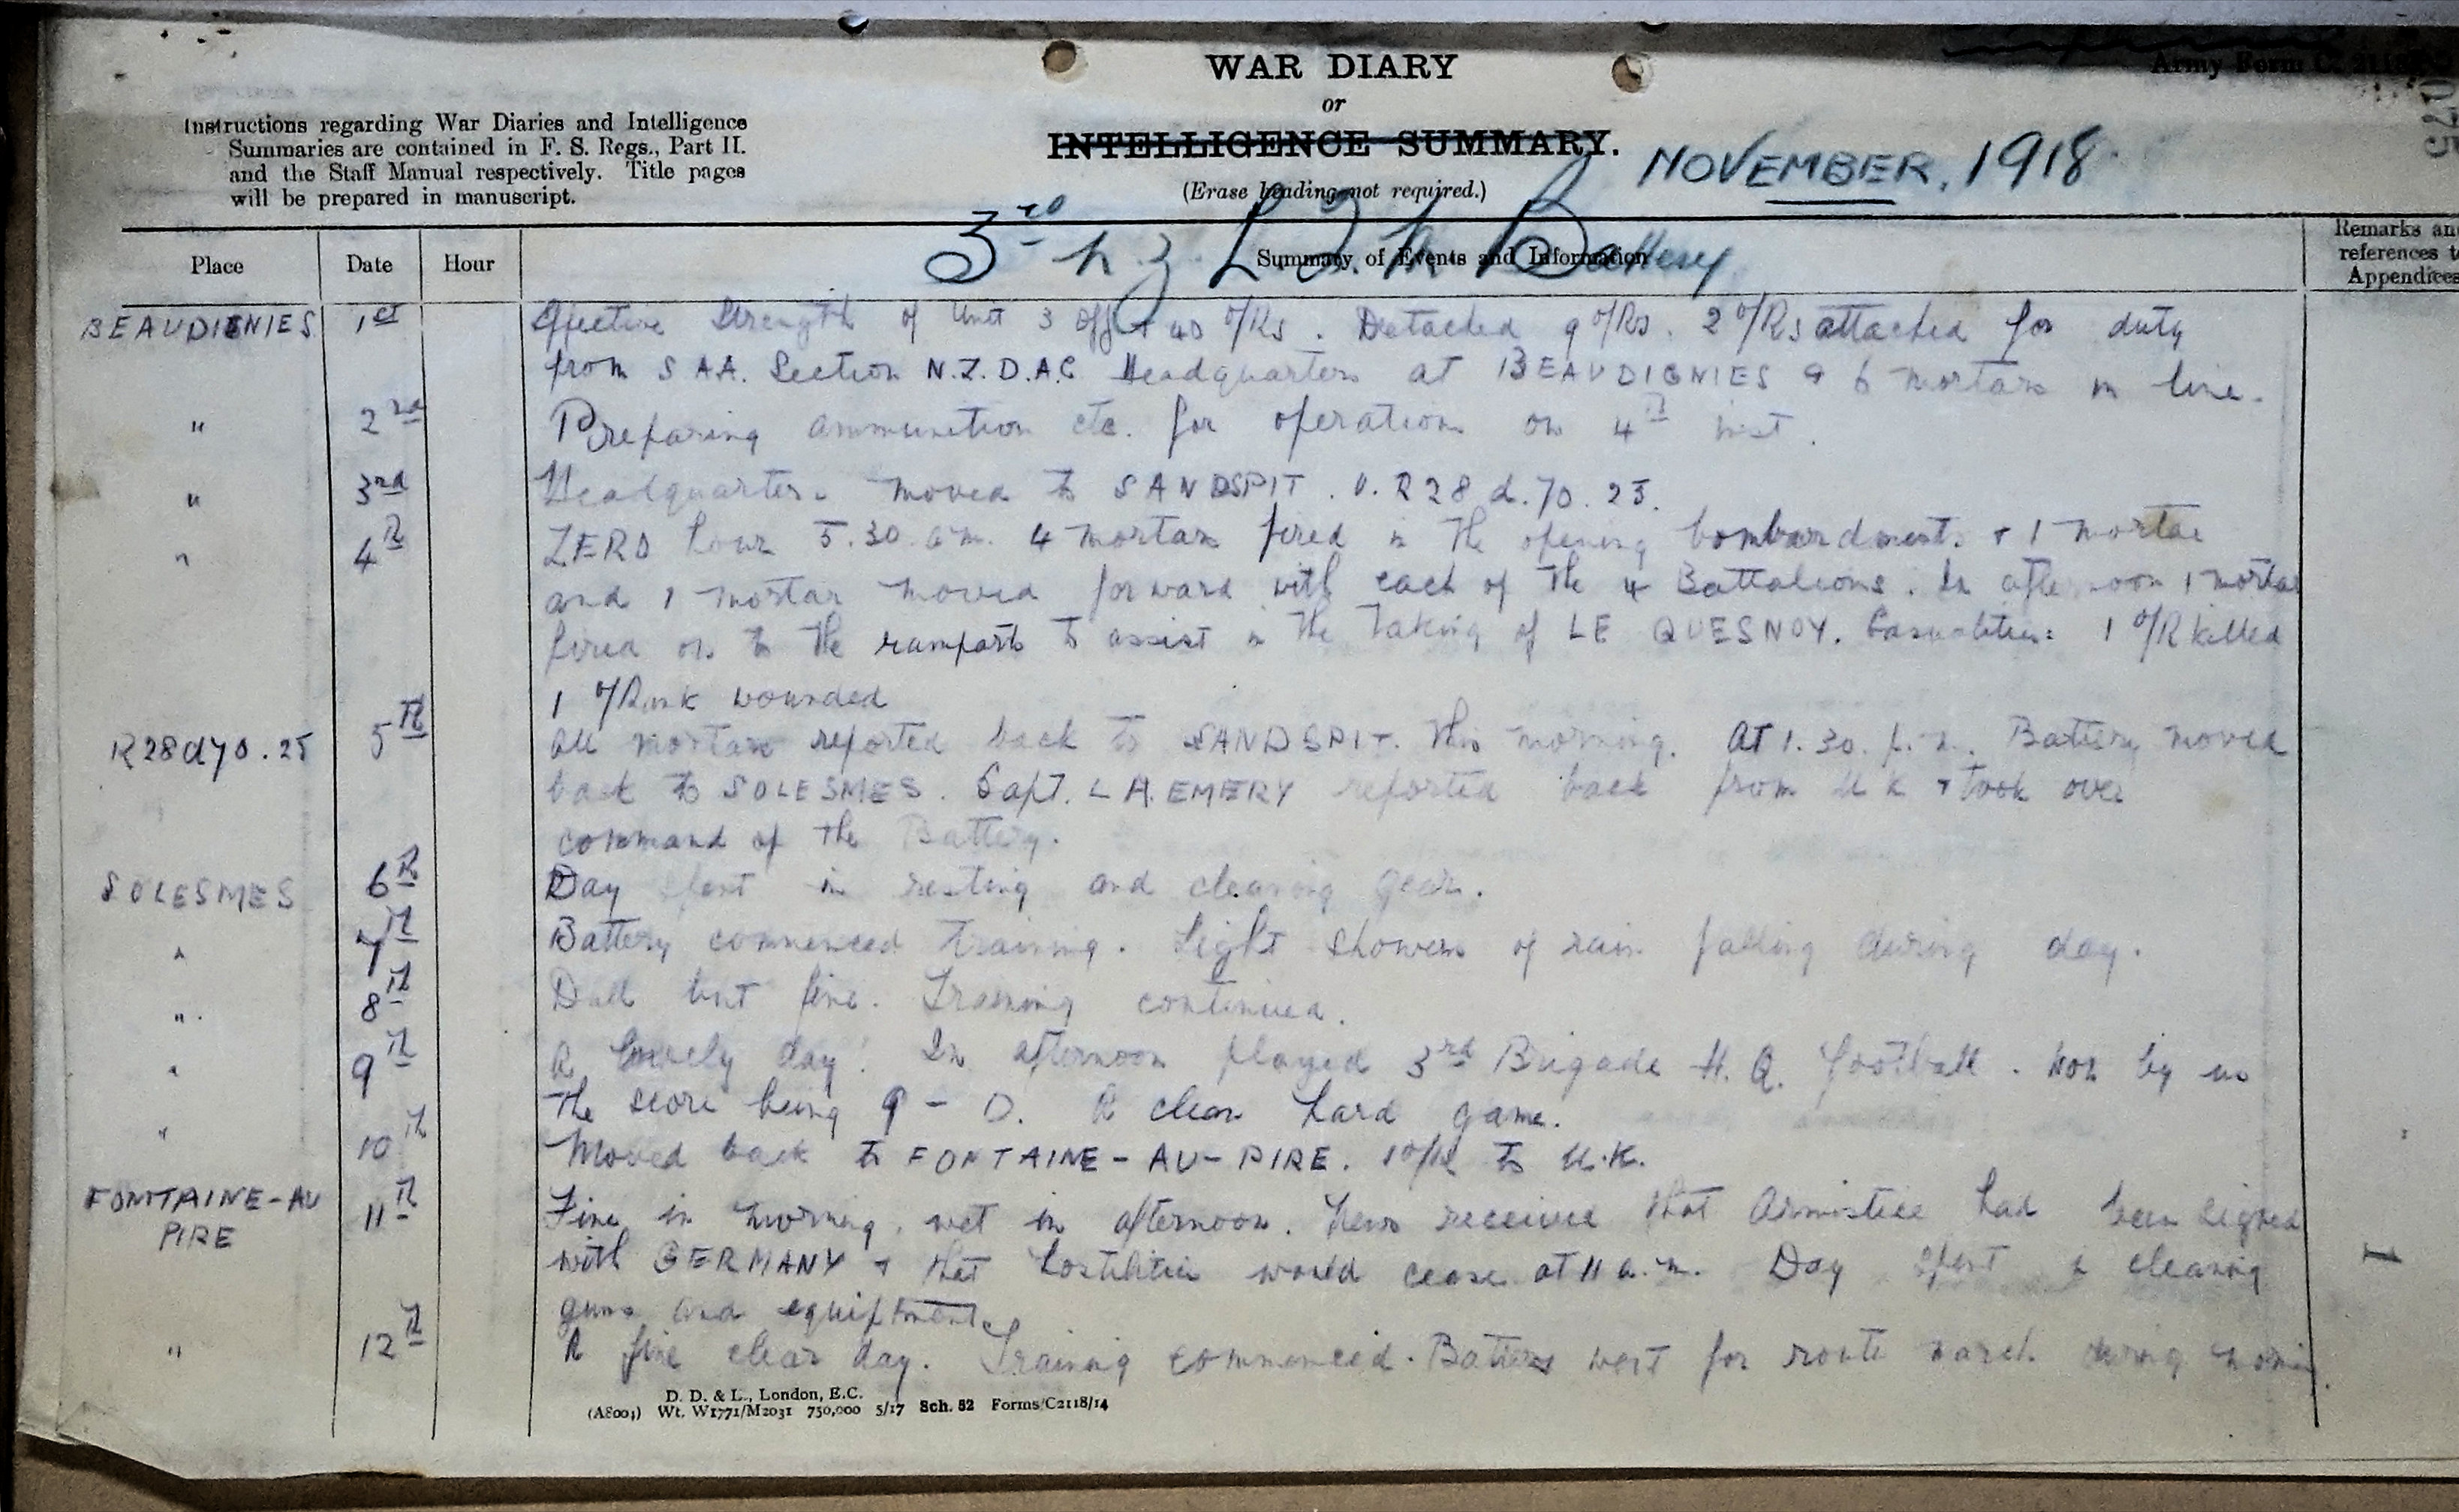 WAR DIARY
or
INTELLIGENCE SUMMARY.
(Erase heading not required.)
Army Form C. 2118.
Instructions regarding War Diaries and Intelligence
Summaries are contained in F. S. Regs., Part II.
and the Staff Manual respectively. Title pages
will be prepared in manuscript.
NOVEMBER, 1918
3rd N Z L.T.M Battery
Place Date Hour Summary of Events and Information Remarks and
references to
Appendices
BEAUDIGNIES 1st Effective Strength of Unit 3 Off + 40 O/Rs. Detached 9 O/Rs. 2 O/Rs attached for duty
from S.A.A. Section N.Z.D.A.C Headquarters at BEAUDIGNIES & 6 mortars in line.
" 2nd Preparing ammunition etc. for operation on 4th inst.
" 3rd Headquarters moved to SANDSPIT. R28 d.70.25.
" 4th ZERO hour 5.30 a.m. 4 mortars fired in the opening bombardments + 1 mortar
and 1 mortar moved forward with each of the 4 Battalions. In afternoon 1 mortar
fired on to the ramparts to assist in the taking of LE QUESNOY. Casualties: 1 O/R killed
1 O/Rank wounded
R28d70.25 5th All mortars reported back to SANDSPIT this morning. At 1.30. p.m. Battery moved
back to SOLESMES. Capt. L A. EMERY reported back from U K + took over
command of the Battery.
SOLESMES 6th Day spent in resting and cleaning gear.
" 7th Battery commenced training. Light showers of rain falling during day.
" 8th Dull but fine. Training continued.
" 9th A lovely day! In afternoon played 3rd Brigade H.Q. football. Won by us
the score being 9 - 0. A clean hard game.
" 10th Moved back to FONTAINE-AU-PIRE. 1 O/R to U.K.
FONTAINE-AU 11th Fine in morning, wet in afternoon. News received that Armistice had been signed
PIRE with GERMANY + that hostilities would cease at 11 a.m. Day spent in cleaning
guns and equiptment
" 12th A fine clear day. Training commenced. Battery went for route march during morning
D. D. & L., London, E.C.
(A8004) Wt. W1771/M2031 750,000 5/17 Sch. 52 Forms/C2118/14